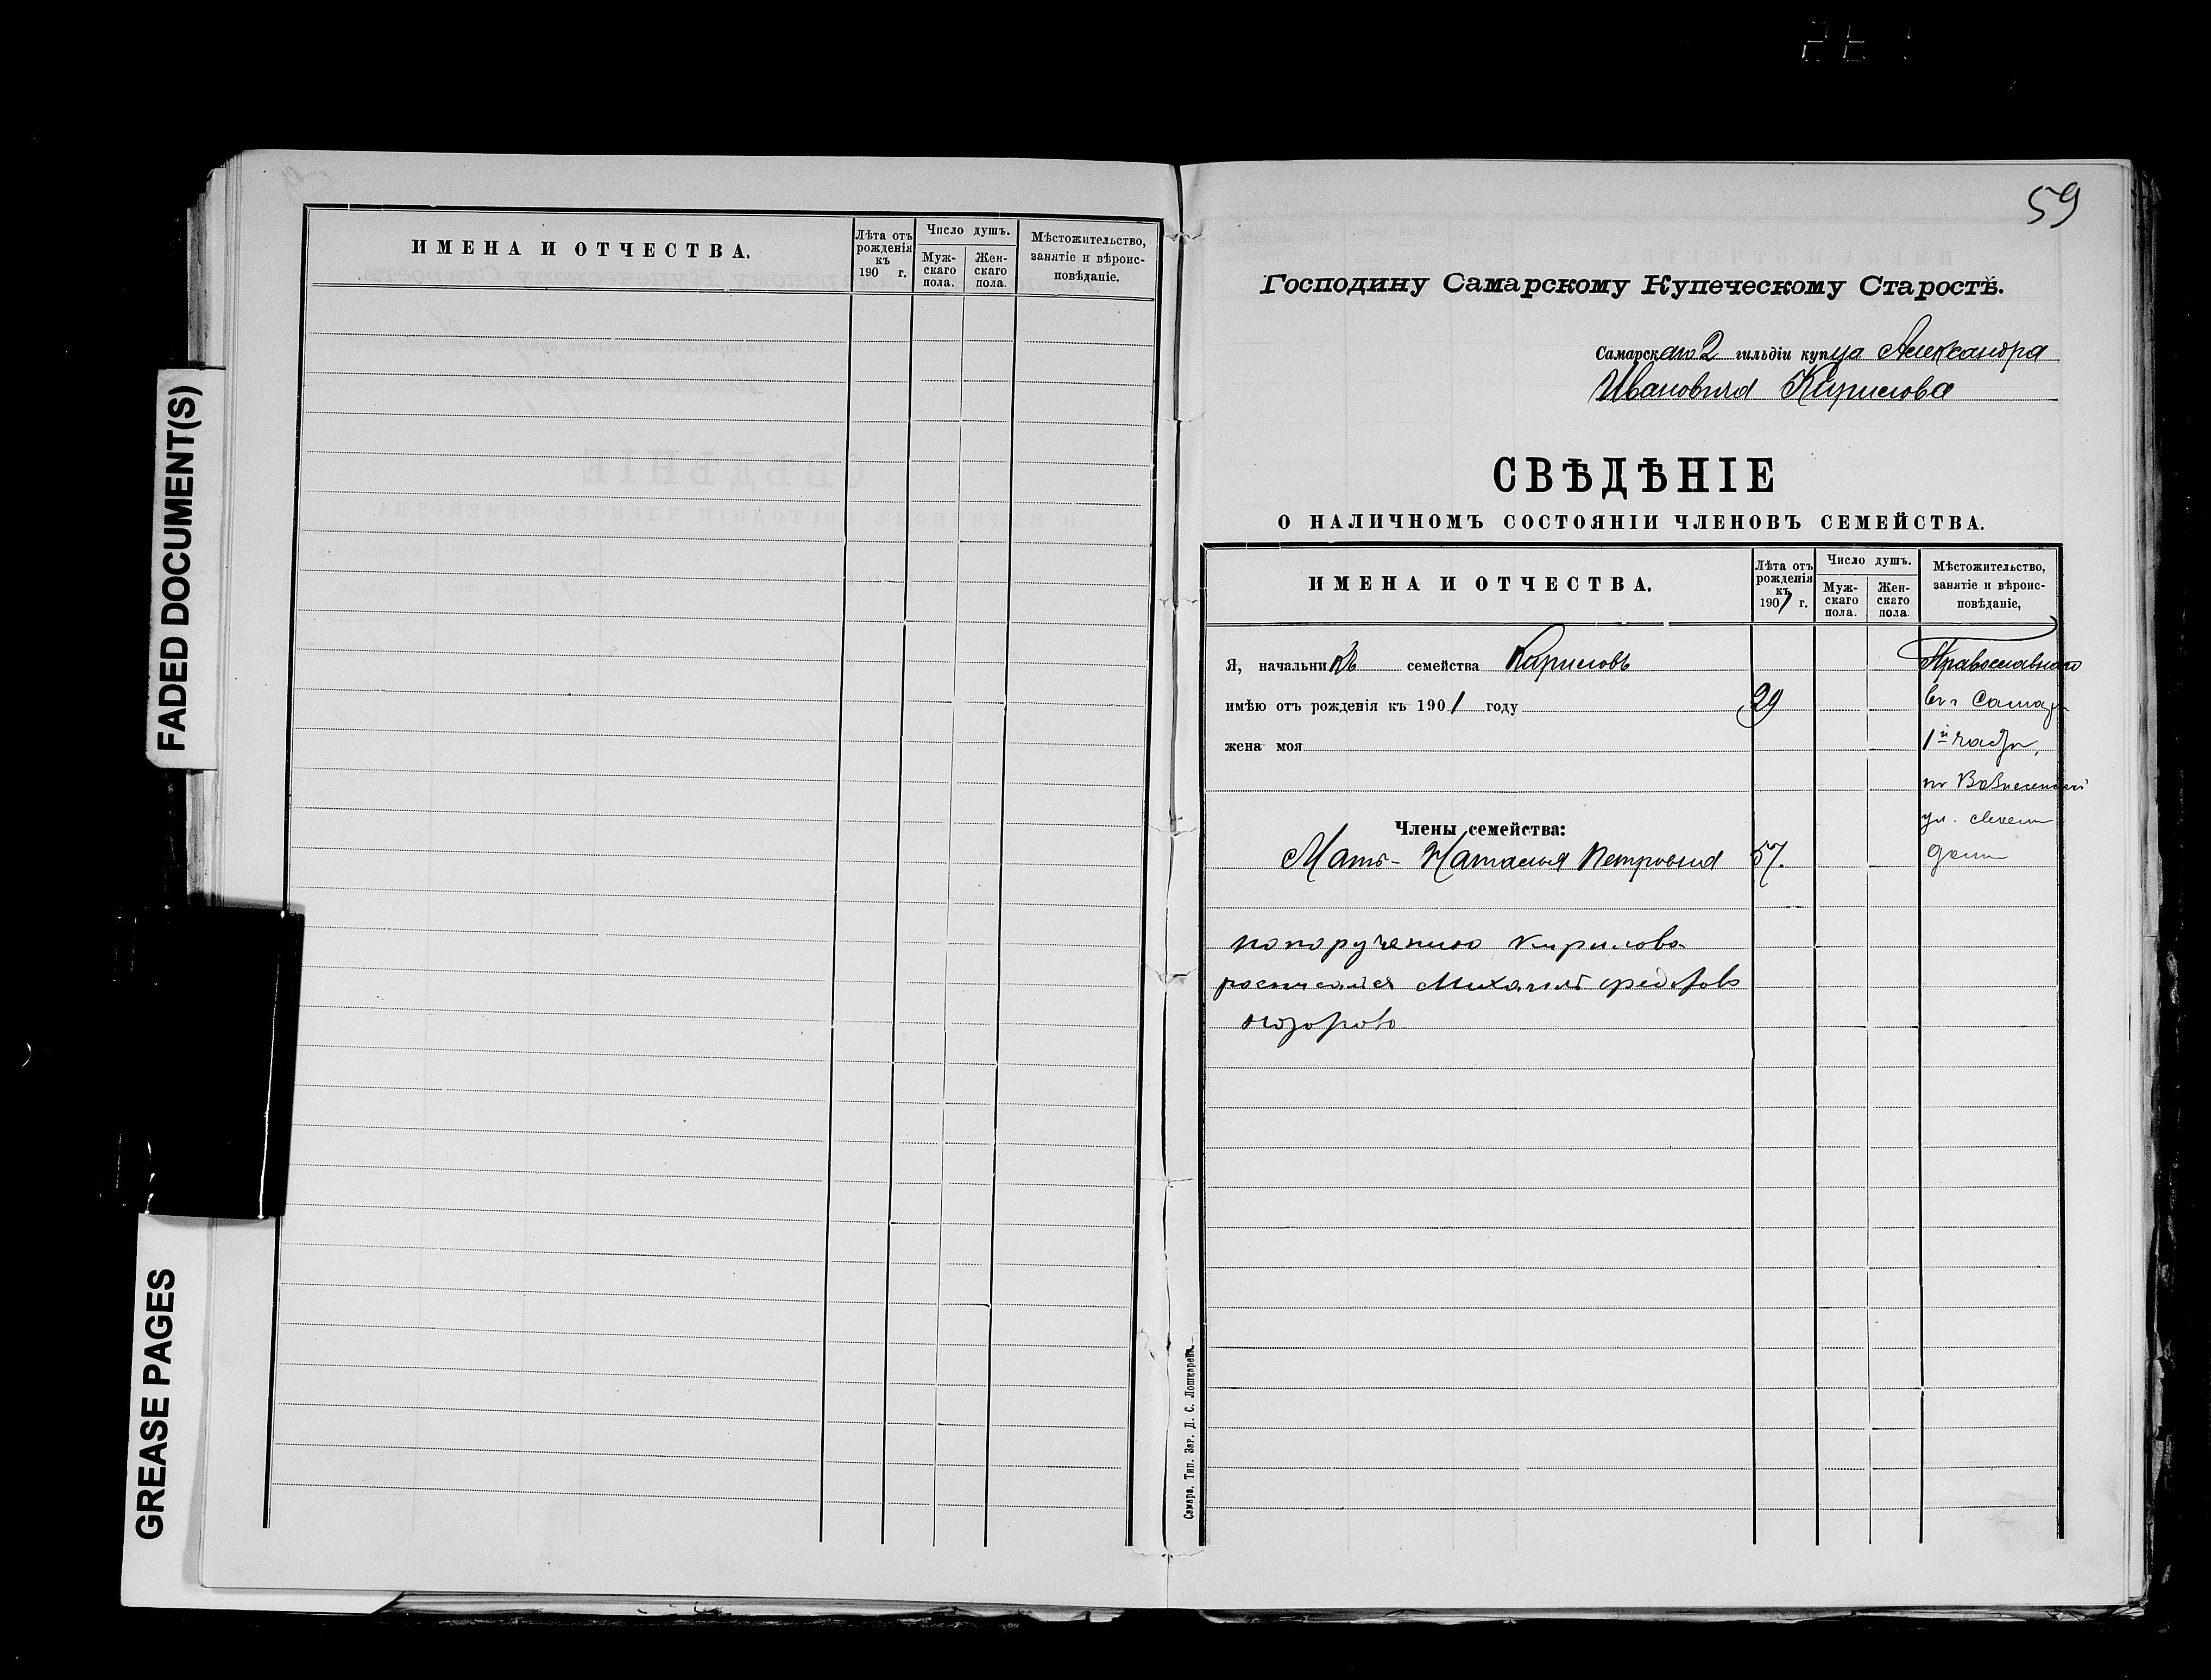 FADED DOCUMENT(S)
GREASE PAGES
ИМЕНА И ОТЧЕСТВА.
Лѣта отъ
рожденія
къ
190 г.
Число душъ.
Муж-
скаго
пола.
Жен-
скаго
пола.
Мѣстожительство,
занятіе и вѣроис-
повѣданіе.
59
Господину Самарскому Купеческому Старостѣ.
Самарскаго 2 гильдіи купца Александра
Ивановича Кирилова
СВѢДѢНІЕ
О НАЛИЧНОМЪ СОСТОЯНІИ ЧЛЕНОВЪ СЕМЕЙСТВА.
ИМЕНА И ОТЧЕСТВА.
Лѣта отъ
рожденія
къ
1901 г.
Число душъ.
Муж-
скаго
пола.
Жен-
скаго
пола.
Мѣстожительство,
занятіе и вѣроис-
повѣданіе,
Я, начальникъ семейства Кириловъ Православнаго
имѣю отъ рожденія къ 1901 году 29 въ г Самарѣ
жена моя 1й части,
по Вознесенской
ул. своемъ
Члены семейства:
Мать - Наталья Петровна 57. домѣ
по поручению Кирилова
росписался Михаилъ Федоровъ
Самара. Тип. Заг. Д. С. Лошкарева.